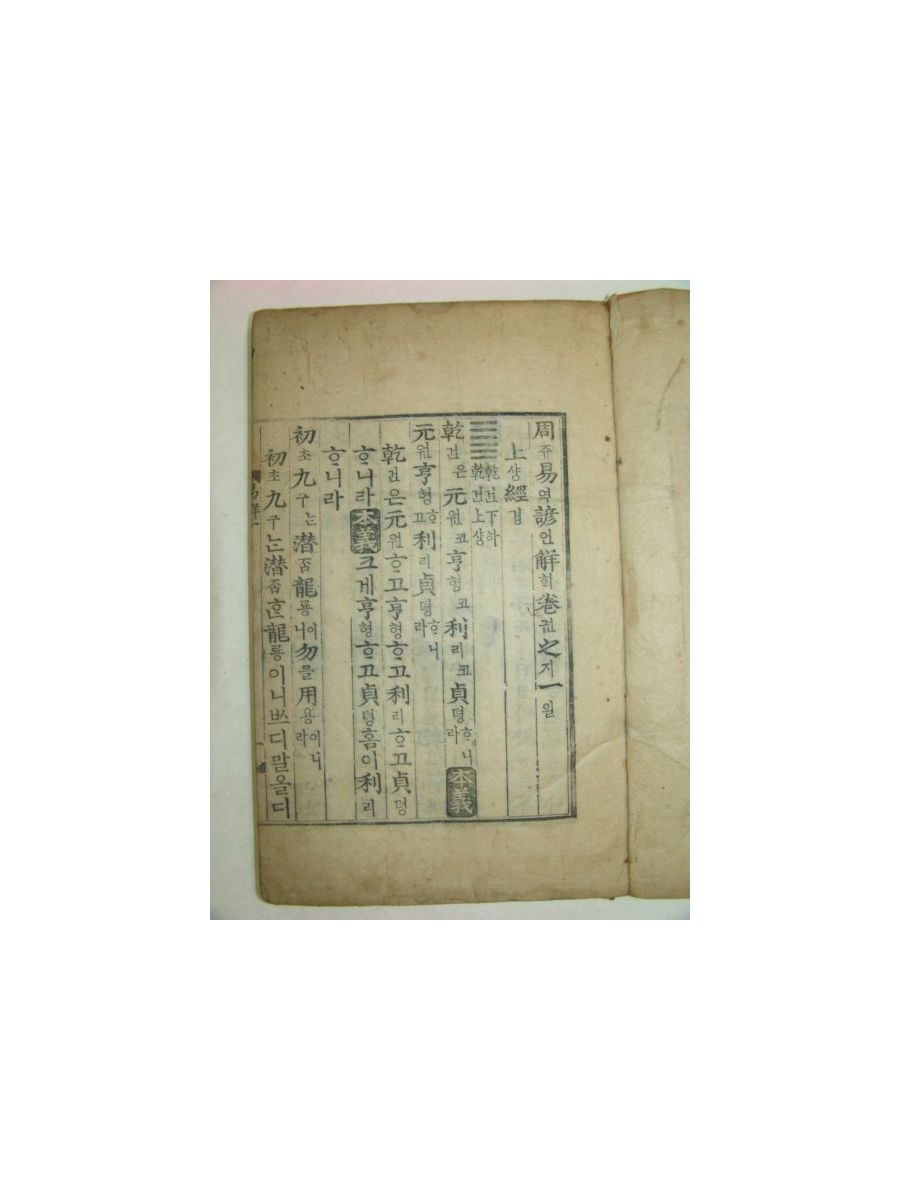 周쥬易역諺언解ᄒᆡ卷권之지一일
上샹經경
乾건下하
乾건上샹
乾건은元원코亨형코利리코貞뎡ᄒᆞ니라本義
元원亨형ᄒᆞ고利리貞뎡ᄒᆞ니라
乾건은元원ᄒᆞ고亨형ᄒᆞ고利리ᄒᆞ고貞뎡
ᄒᆞ니라本義크게亨형ᄒᆞ고貞뎡홈이利리
ᄒᆞ니라
初초九구ᄂᆞᆫ潜ᄌᆞᆷ龍룡이니勿믈用용이니라
初초九구ᄂᆞᆫ潜ᄌᆞᆷᄒᆞᆫ龍룡이니ᄡᅳ디말올디